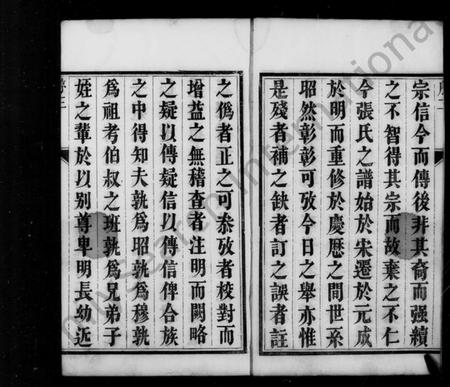 序二
宗信今而傳後非其裔而强續
之不智得其宗而故棄之不仁
今張氏之譜始於宋遷於元成
於明而重修於慶歴之間世系
昭然彰彰可攷今日之舉亦惟
是殘者補之缺者訂之誤者註
之偽者正之可叅攷者校對而
增益之無稽查者注明而闕略
之疑以傳疑信以傳信俾合族
之中得知夫孰爲昭孰爲穆孰
爲祖考伯叔之班孰爲兄弟子
姪之輩於以别尊卑明長幼近
序三